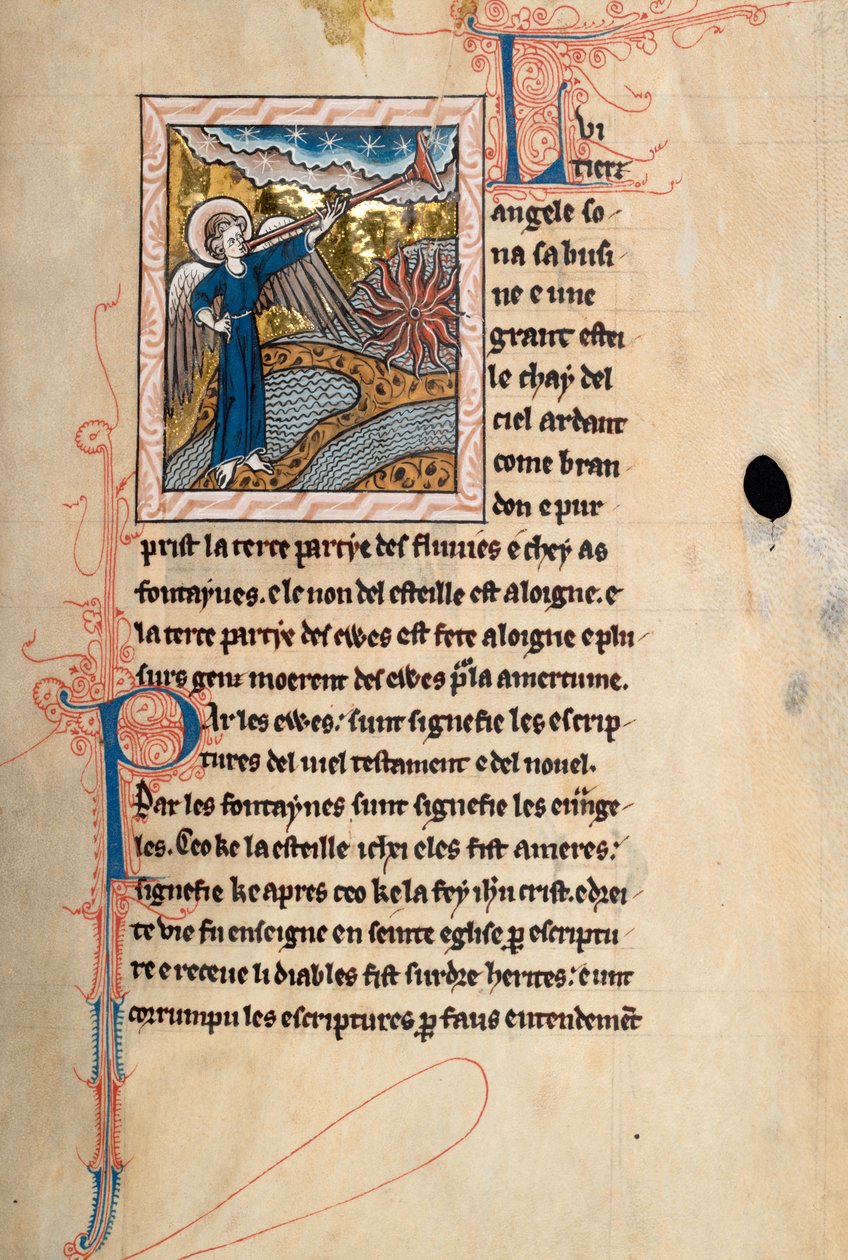 Li
tierz
angele so
na sa busi
ne e une
grant estei
le chaÿ del
ciel ardant
come bran
don e pur
prist la terce partÿe des fluuies e cheÿ as
fontaÿnes. e le non del esteille est aloigne. e
la terce partÿe des ewes est fete aloigne e plu
surs genz moerent des ewes p la amertume.
Par les ewes: sunt signefie les escrip
tures del uiel testament e del nouel.
Par les fontaÿnes sunt signefie les euunge
les. Ceo ke la esteille ichxi eles fist ameres:
signefie ke apres ceo ke la fey ihu crist. e drei
te vie fu enseigne en seinte eglise ꝑ escriptu
re e receue li diables fist surdre herites: e unt
corrumpu les escriptures ꝑ faus entendemēt